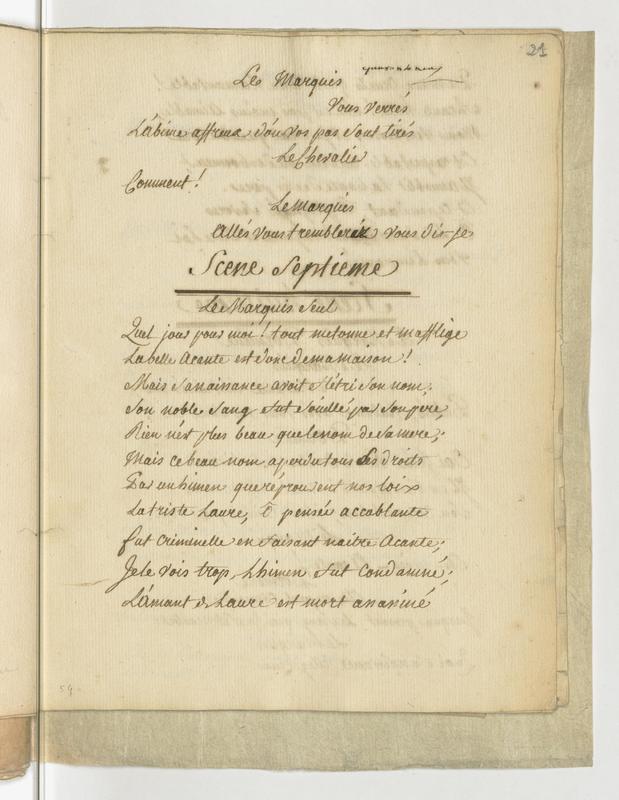 21
quarante neuf
Le Marquis
Vous verrés
L'abime affreux d'où vos pas sont tirés
Le Chevalier
Comment!
Le Marquis
Allés vous tremblerez vous dis-je
Scene Septieme
Le Marquis Seul
Quel jour pour moi! tout metonne et mafflige
La belle Acante est donc de ma maison!
Mais sa naissance avoit flétri son nom;
Son noble sang fut souillé par son pere,
Rien n'est plus beau que le nom de sa mere;
Mais ce beau nom a perdu tous ses droits
Par un himen que réprouvent nos loix
La triste Laure, ô pensée accablante
fut criminelle en faisant naitre Acante;
Je le vois trop, L'himen fut condamné;
L'amant de Laure est mort assassiné
59